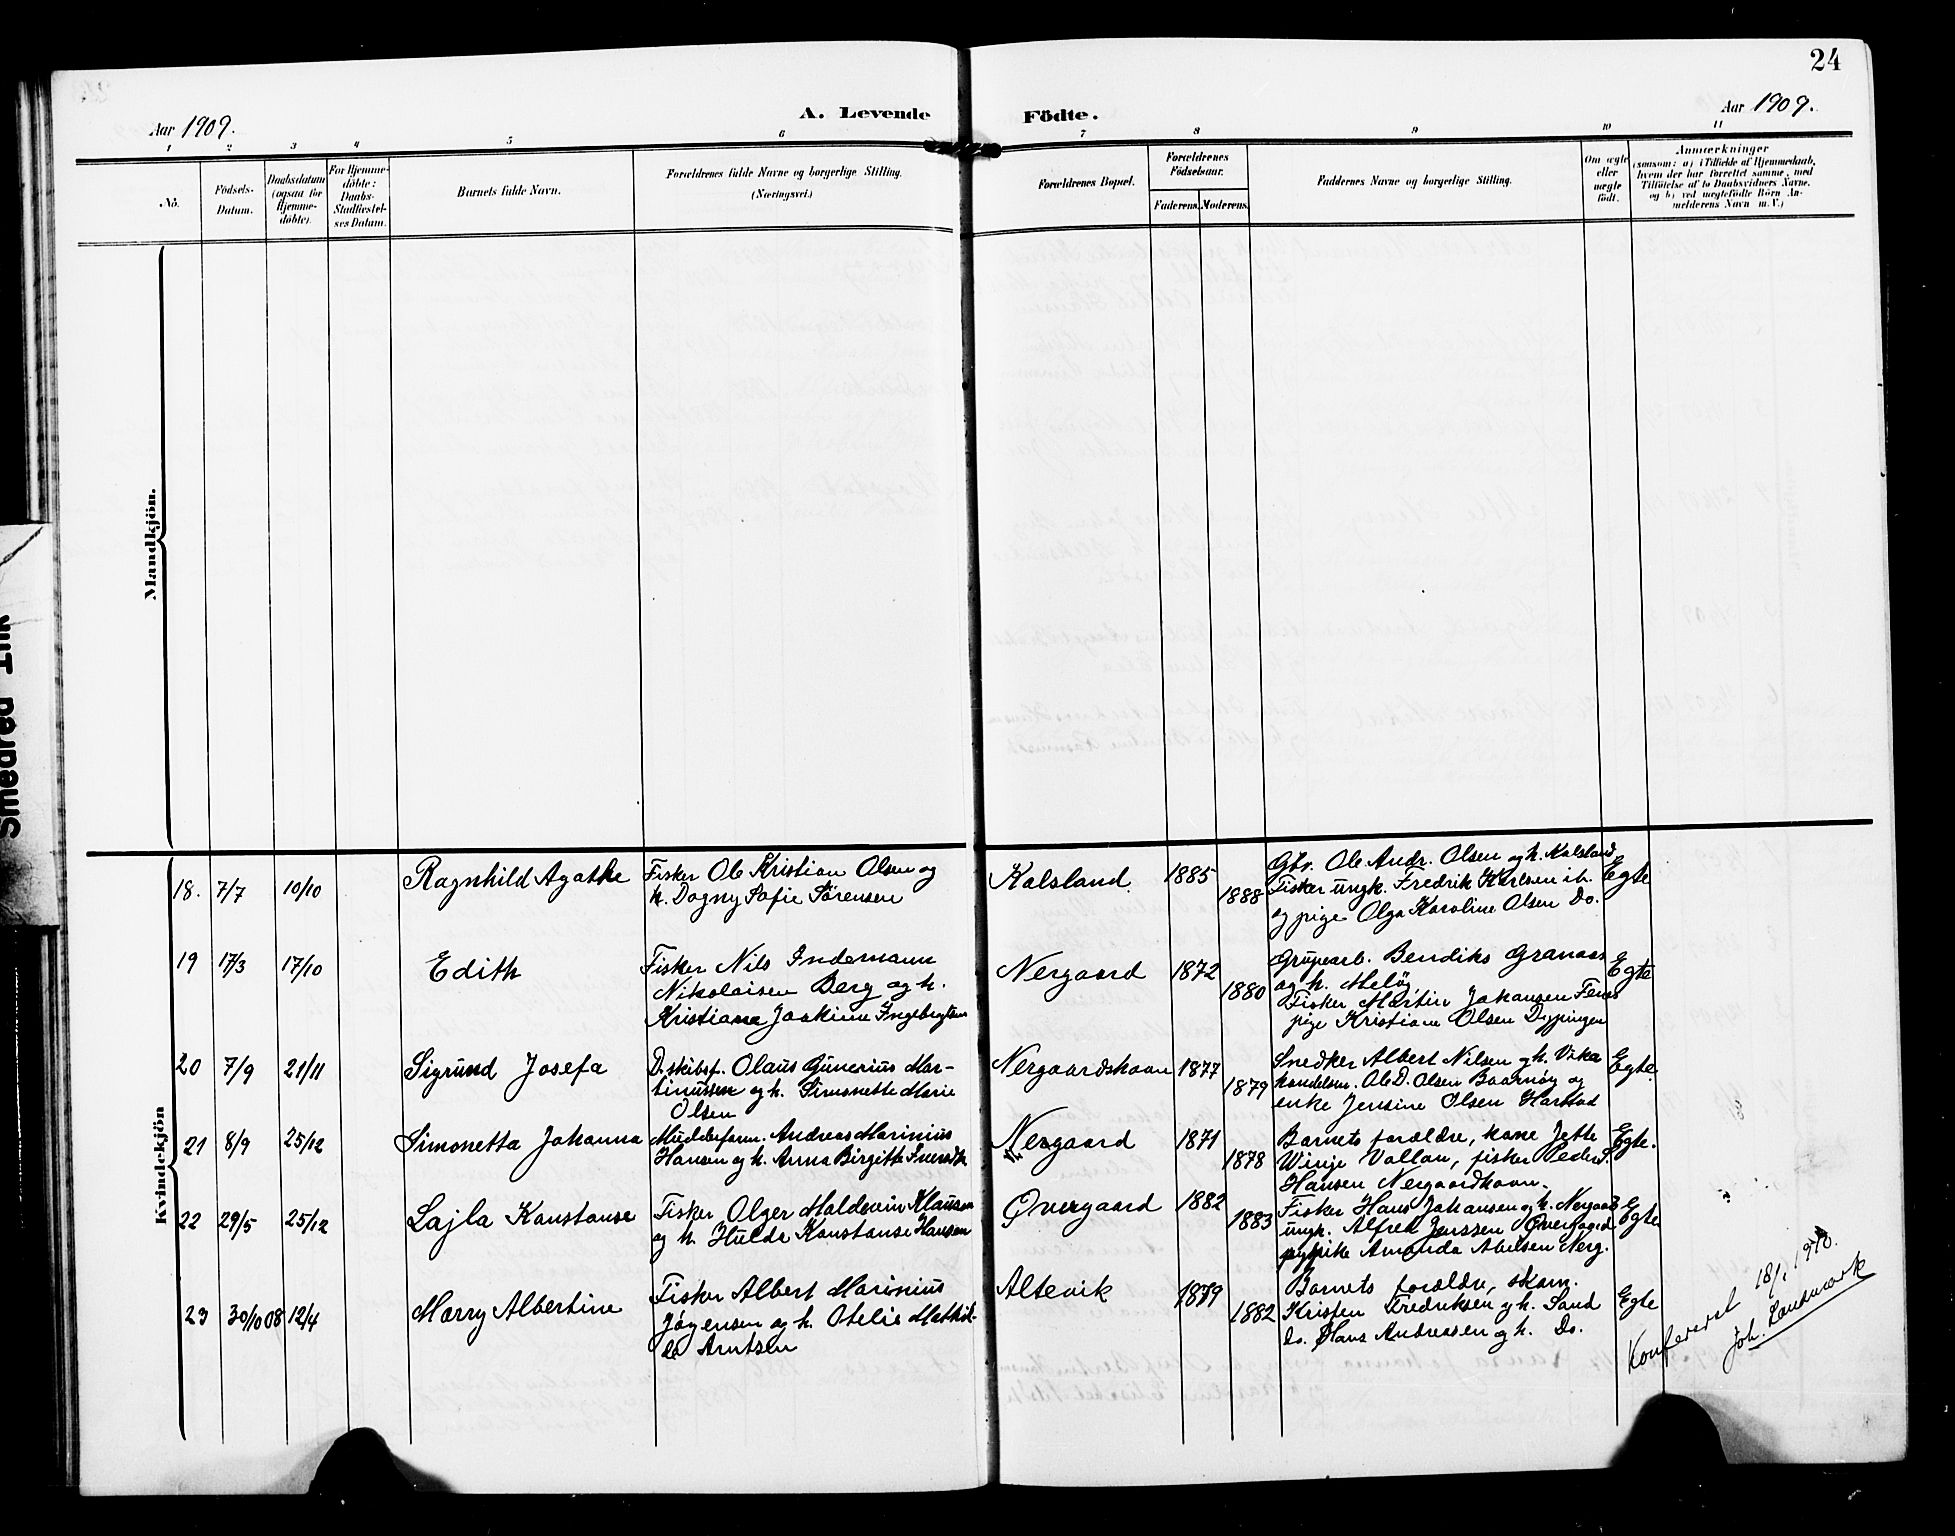 24
Aar 1909.
A. Levende Födte.
Aar 1909.
1 2 3 4 5 6 7 8 9 10 11
No.
Födsels-Datum.
Daabsdatum (ogsaa for Hjemme-döbte).
For Hjemme-döbte: Daabs-Stadfæstel-ses Datum.
Barnets fulde Navn.
Forældrenes fulde Navne og borgerlige Stilling.
(Næringsvei.)
Forældrenes Bopæl.
Forældrenes Födselsaar.
Faderens. Moderens.
Faddernes Navne og borgerlige Stilling.
Om ægte eller uægte födt.
Anmærkninger
(saasom: a) i Tilfælde af Hjemmedaab,
hvem der har forrettet samme, med
Tilföielse af to Daabsvidners Navne,
og b) ved uægtefödte Börn An-
melderens Navn m. V.)
Mandkjön.
Kvindekjön
18. 7/7 10/10 Ragnhild Agathe
Fisker Ole Kristian Olsen og
h. Dagny Sofie Sörensen
Kalsland 1885 1888
Gbr. Ole Andr. Olsen og h. Kalsland
Fisker ungk. Fredrik Karlsen ib.
og pige Olga Karoline Olsen Do.
Egte
19 17/3 17/10 Edith
Fisker Nils Indemann
Nikolaisen Berg og h.
Kristiane Joakime Ingebrigtsen
Nergaard 1872 1880
Grupearb. Bendiks Granaas
og h. Meløy
Fisker Martin Johansen Fenes
pige Kristiane Olsen Dypingen
Egte
20 7/9 21/11 Sigrund Josefa
D.skibsf. Olaus Gunerius Mar-
tinussen og h. Simonette Marie
Olsen
Nergaardshavn 1877 1879
Snedker Albert Nilsen og h. Vika
handelsm. Ole D. Olsen Baarnøy og
enke Jensine Olsen Harstad
Egte.
21 8/9 25/12 Simonetta Johanna
Mudderform. Andreas Marinius
Hansen og h. Anna Birgitte
Nergaard 1871 1878
Barnets forældre, kone Jette
Winje Vollan, fisker Peder
Hansen Nergaardhavn.
Egte.
22 29/5 25/12 Lajla Konstanse
Fisker Olger Maldevin Klausen
og h. Hulda Konstanse Hansen
Overgaard 1882 1883
Fisker Hans Johansen og h. Nergaard
ungk. Alfred Jenssen Overgaard
pike Amanda Abelsen Nerg.
Egte
23 30/10 08 12/4 Marry Albertine
Fisker Albert Marinius
Jørgensen og h. Otelie Mathil-
de Arntsen
Altevik 1879 1882
Barnets forældre, skom.
Kristen Fredriksen og h. Sand
Do. Hans Andreasen og h. Do.
Egte
Konfereret 18/1 1910.
Joh. Landmark
Smedrad Ink